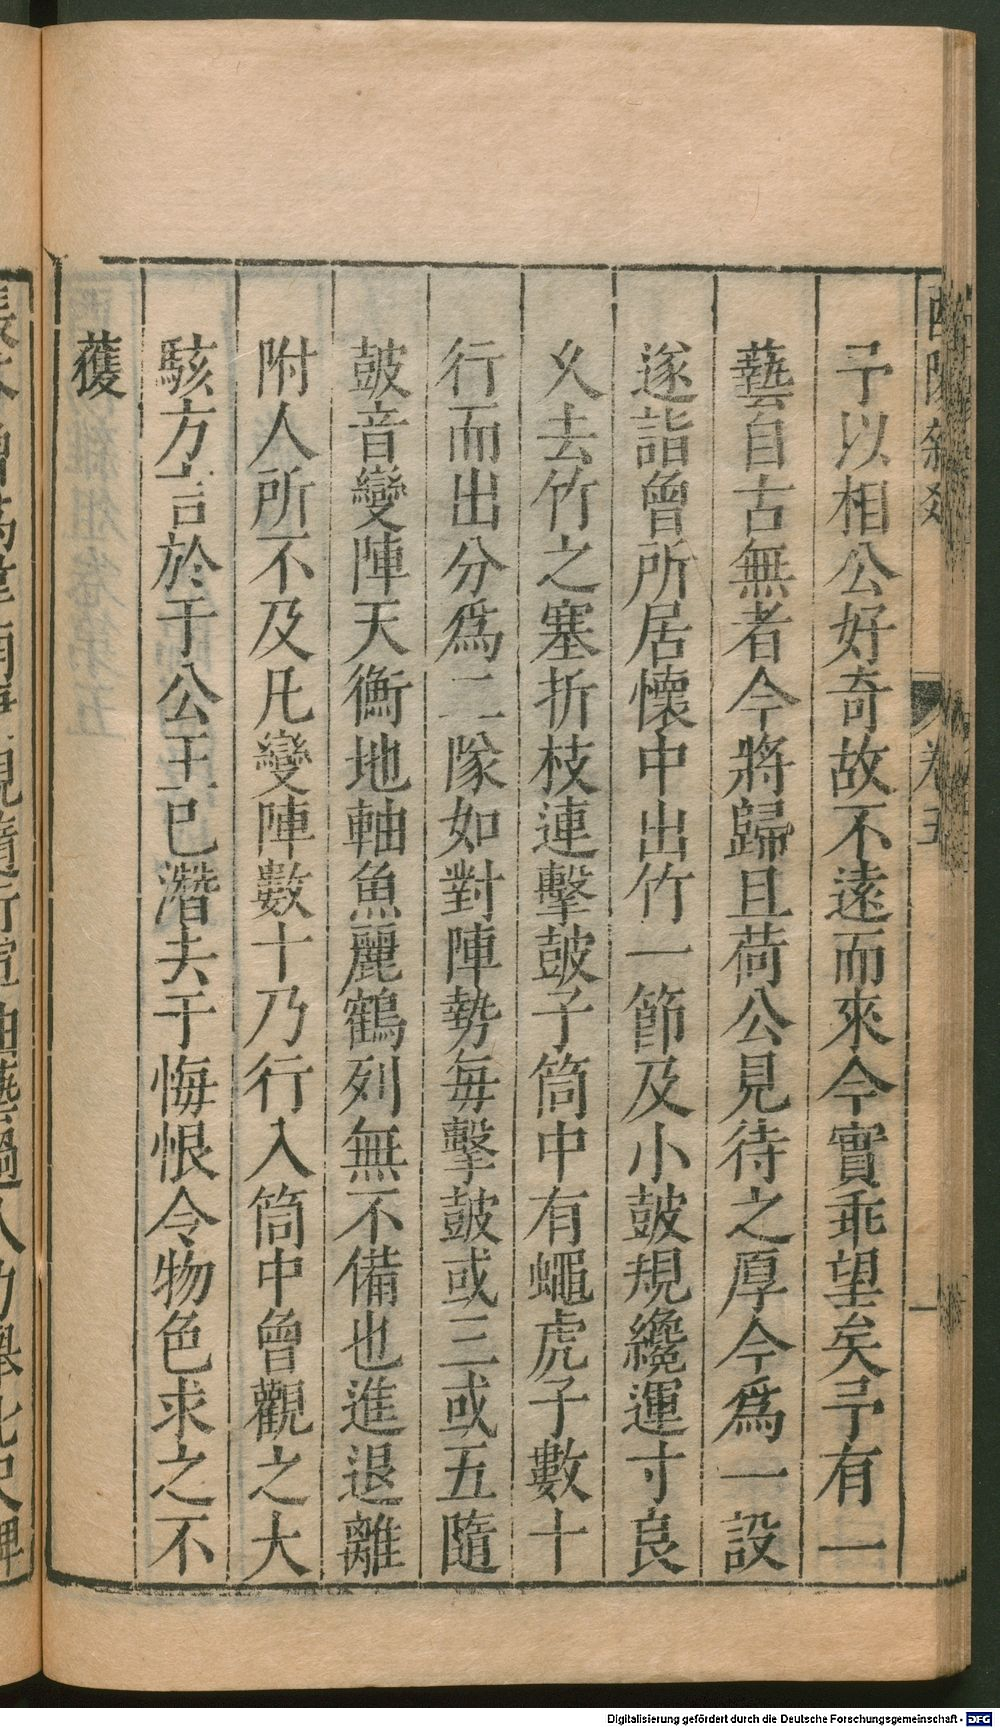 予以相公好奇故不遠而來今實乖望矣予有一
藝自古無者今將歸且荷公見待之厚今為一設
遂詣曾所居懷中出竹一節及小鼓規纔運寸良
乆去竹之塞折枝連擊鼓子筒中有蠅虎子數十
行而出分爲二隊如對陣勢每擊鼓或三或五隨
鼓音變陣天衡地軸魚麗鶴列無不備也進退離
附人所不及凡變陣數十乃行入筒中曾觀之大
駭方言於于公王已潛去于悔恨令物色求之不
獲
卷五
一
Digitalisierung gefördert durch die Deutsche Forschungsgemeinschaft - DFG